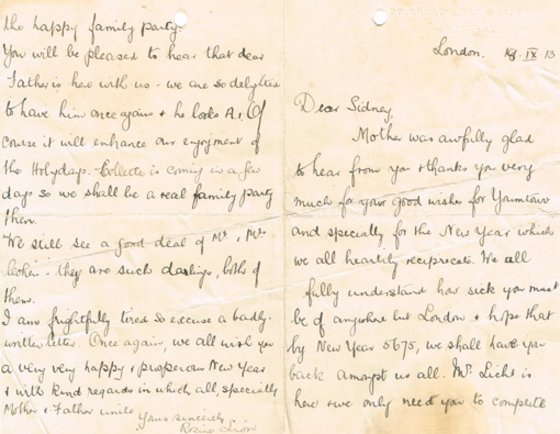 London. 18.IX.13
Dear Sidney,
Mother was awfully glad
to hear from you & thanks you very
much for your good wishes for Yomtov
and specially for the New Year which
we all heartily reciprocate. We all
fully understand how sick you must
be of anywhere but London & hope that
by New Year 5675, we shall have you
back amongst us all. Mr. Licht is
here & we only need you to complete
the happy family party.
You will be pleased to hear that dear
Father is here with us - we are so delighted
to have him once again & he looks A.1. Of
course it will enhance our enjoyment of
the Holydays. Collette is coming in a few
days so we shall be a real family party
then.
We still see a good deal of Mr. & Mrs.
- they are such darlings, both of
them.
I am frightfully tired so excuse a badly-
written letter. Once again, we all wish you
a very very happy & prosperous New Year
& with kind regards in which all, specially
Mother & Father unite
Yours sincerely